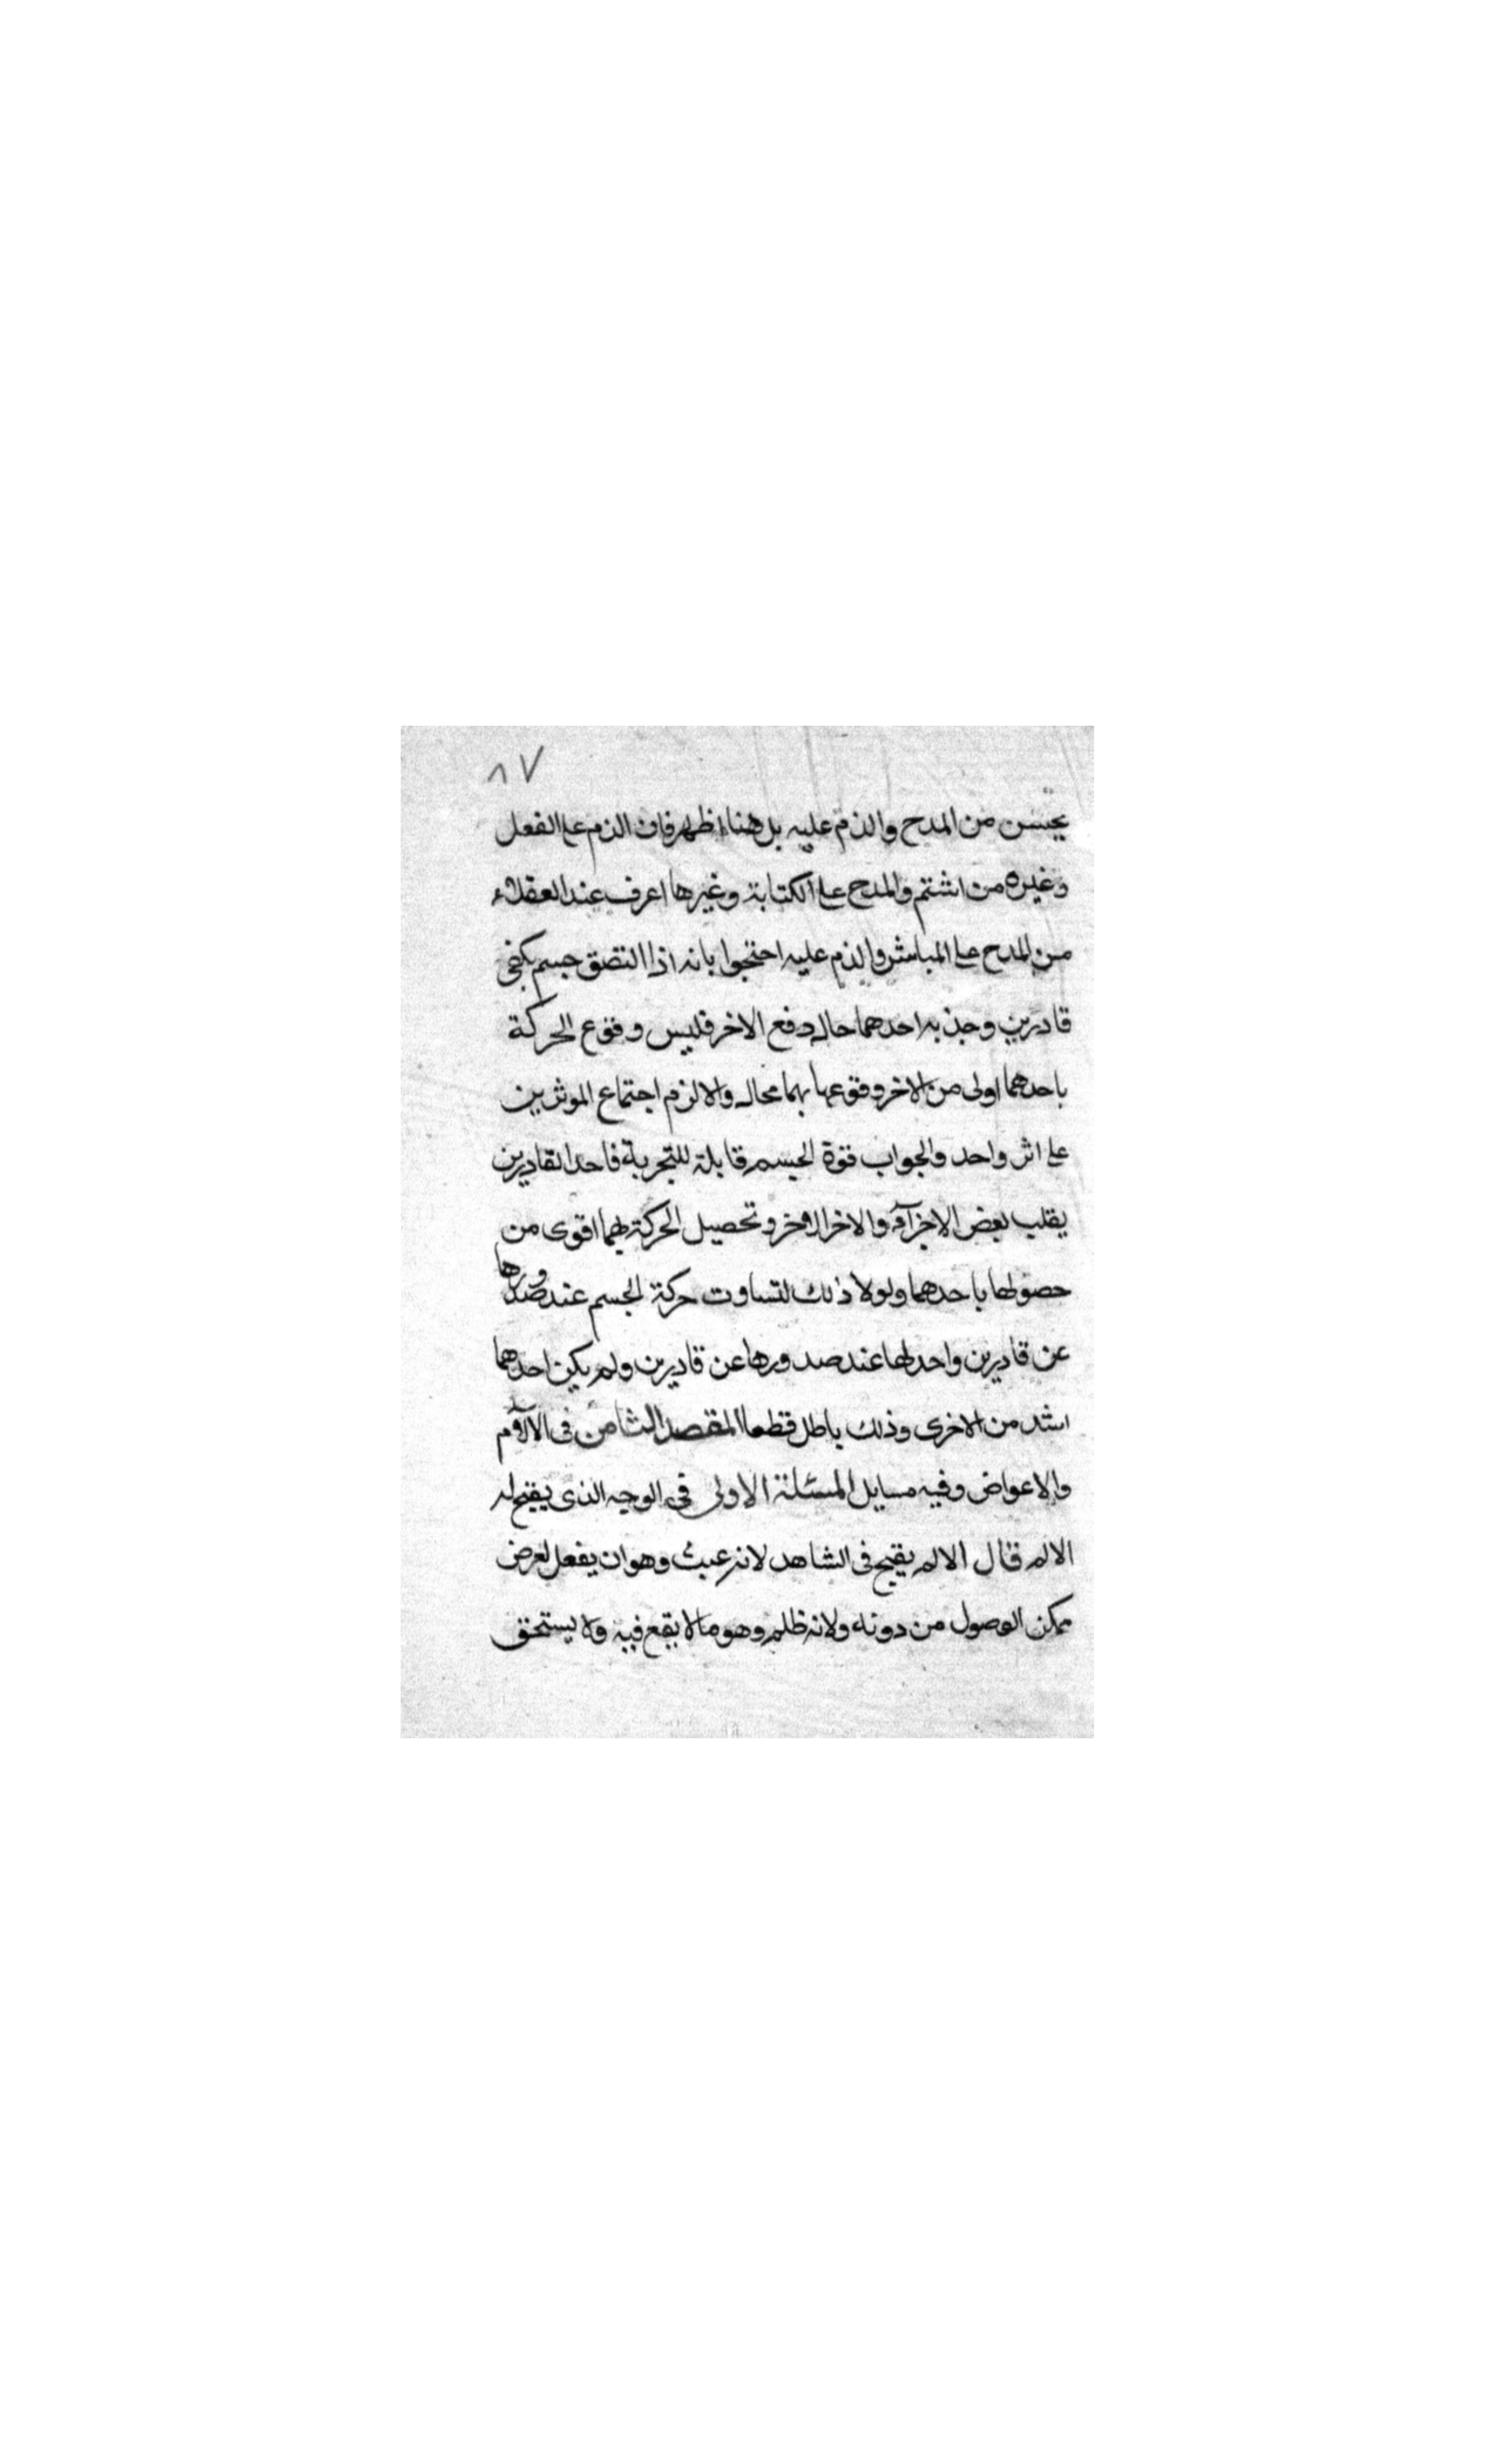 ٨٧
يحسن من المدح والذم عليه بل هنا اظهر فان الذم على الفعل
وغيره من اشتم والمدح على الكتابة وغيرها اعرف عند العقلاء
من المدح على المباشر والذم عليه احتجوا بانه اذا التصق جسم بكفى
قادرين وجذبه احدهما حال دفع الاخر فليس وقوع الحركة
باحدهما اولى من الاخر ووقوعها بهما محال والا لزم اجتماع الموثرين
على اثر واحد والجواب قوة الجسم قابلة للتجربة فاحد القادرين
يقلب بعض الاجزآء والاخر الاخر وتحصيل الحركة بهما اقوى من
حصولها باحدهما ولولا ذلك لتساوت حركة الجسم عند صدورها
عن قادرين واحدلها عند صدورها عن قادرين ولم يكن احدهما
اشد من الاخرى وذلك باطل قطعا المقصد الثامن فى الالآم
والاعواض وفيه مسايل المسئلة الاولى فى الوجه الذى يقبح له
الالم قال الالم يقبح فى الشاهد لانه عبث وهو ان يفعل لغرض
يمكن الوصول من دونه ولانه ظلم وهو ما لا يقع فيه ولا يستحق